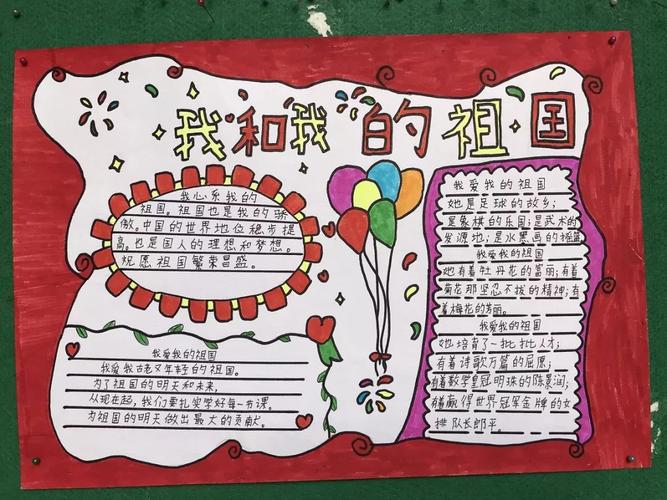 我和我的祖国
我心系我的
祖国。祖国也是我的骄
傲。中国的世界地位稳步提
高。也是国人的理想和梦想。
祝愿祖国繁荣昌盛。
我爱我的祖国
我爱我古老又年轻的祖国。
为了祖国的明天和未来,
从现在起,我们要扎实学好每一书课。
为祖国的明天做出最大的贡献。
我爱我的祖国
她是足球的故乡;
是象棋的乐园;是武术的
发源地;是水墨画的摇篮
我爱我的祖国
她有着牡丹花的富丽;有着
菊花那坚忍不拔的精神;有
着梅花的芳丽。
我爱我的祖国
她培育了一批批人才;
有着诗歌万篇的屈愿;
有着数学皇冠明珠的陈景润;
有着赢得世界冠军金牌的女
排队长郎平。